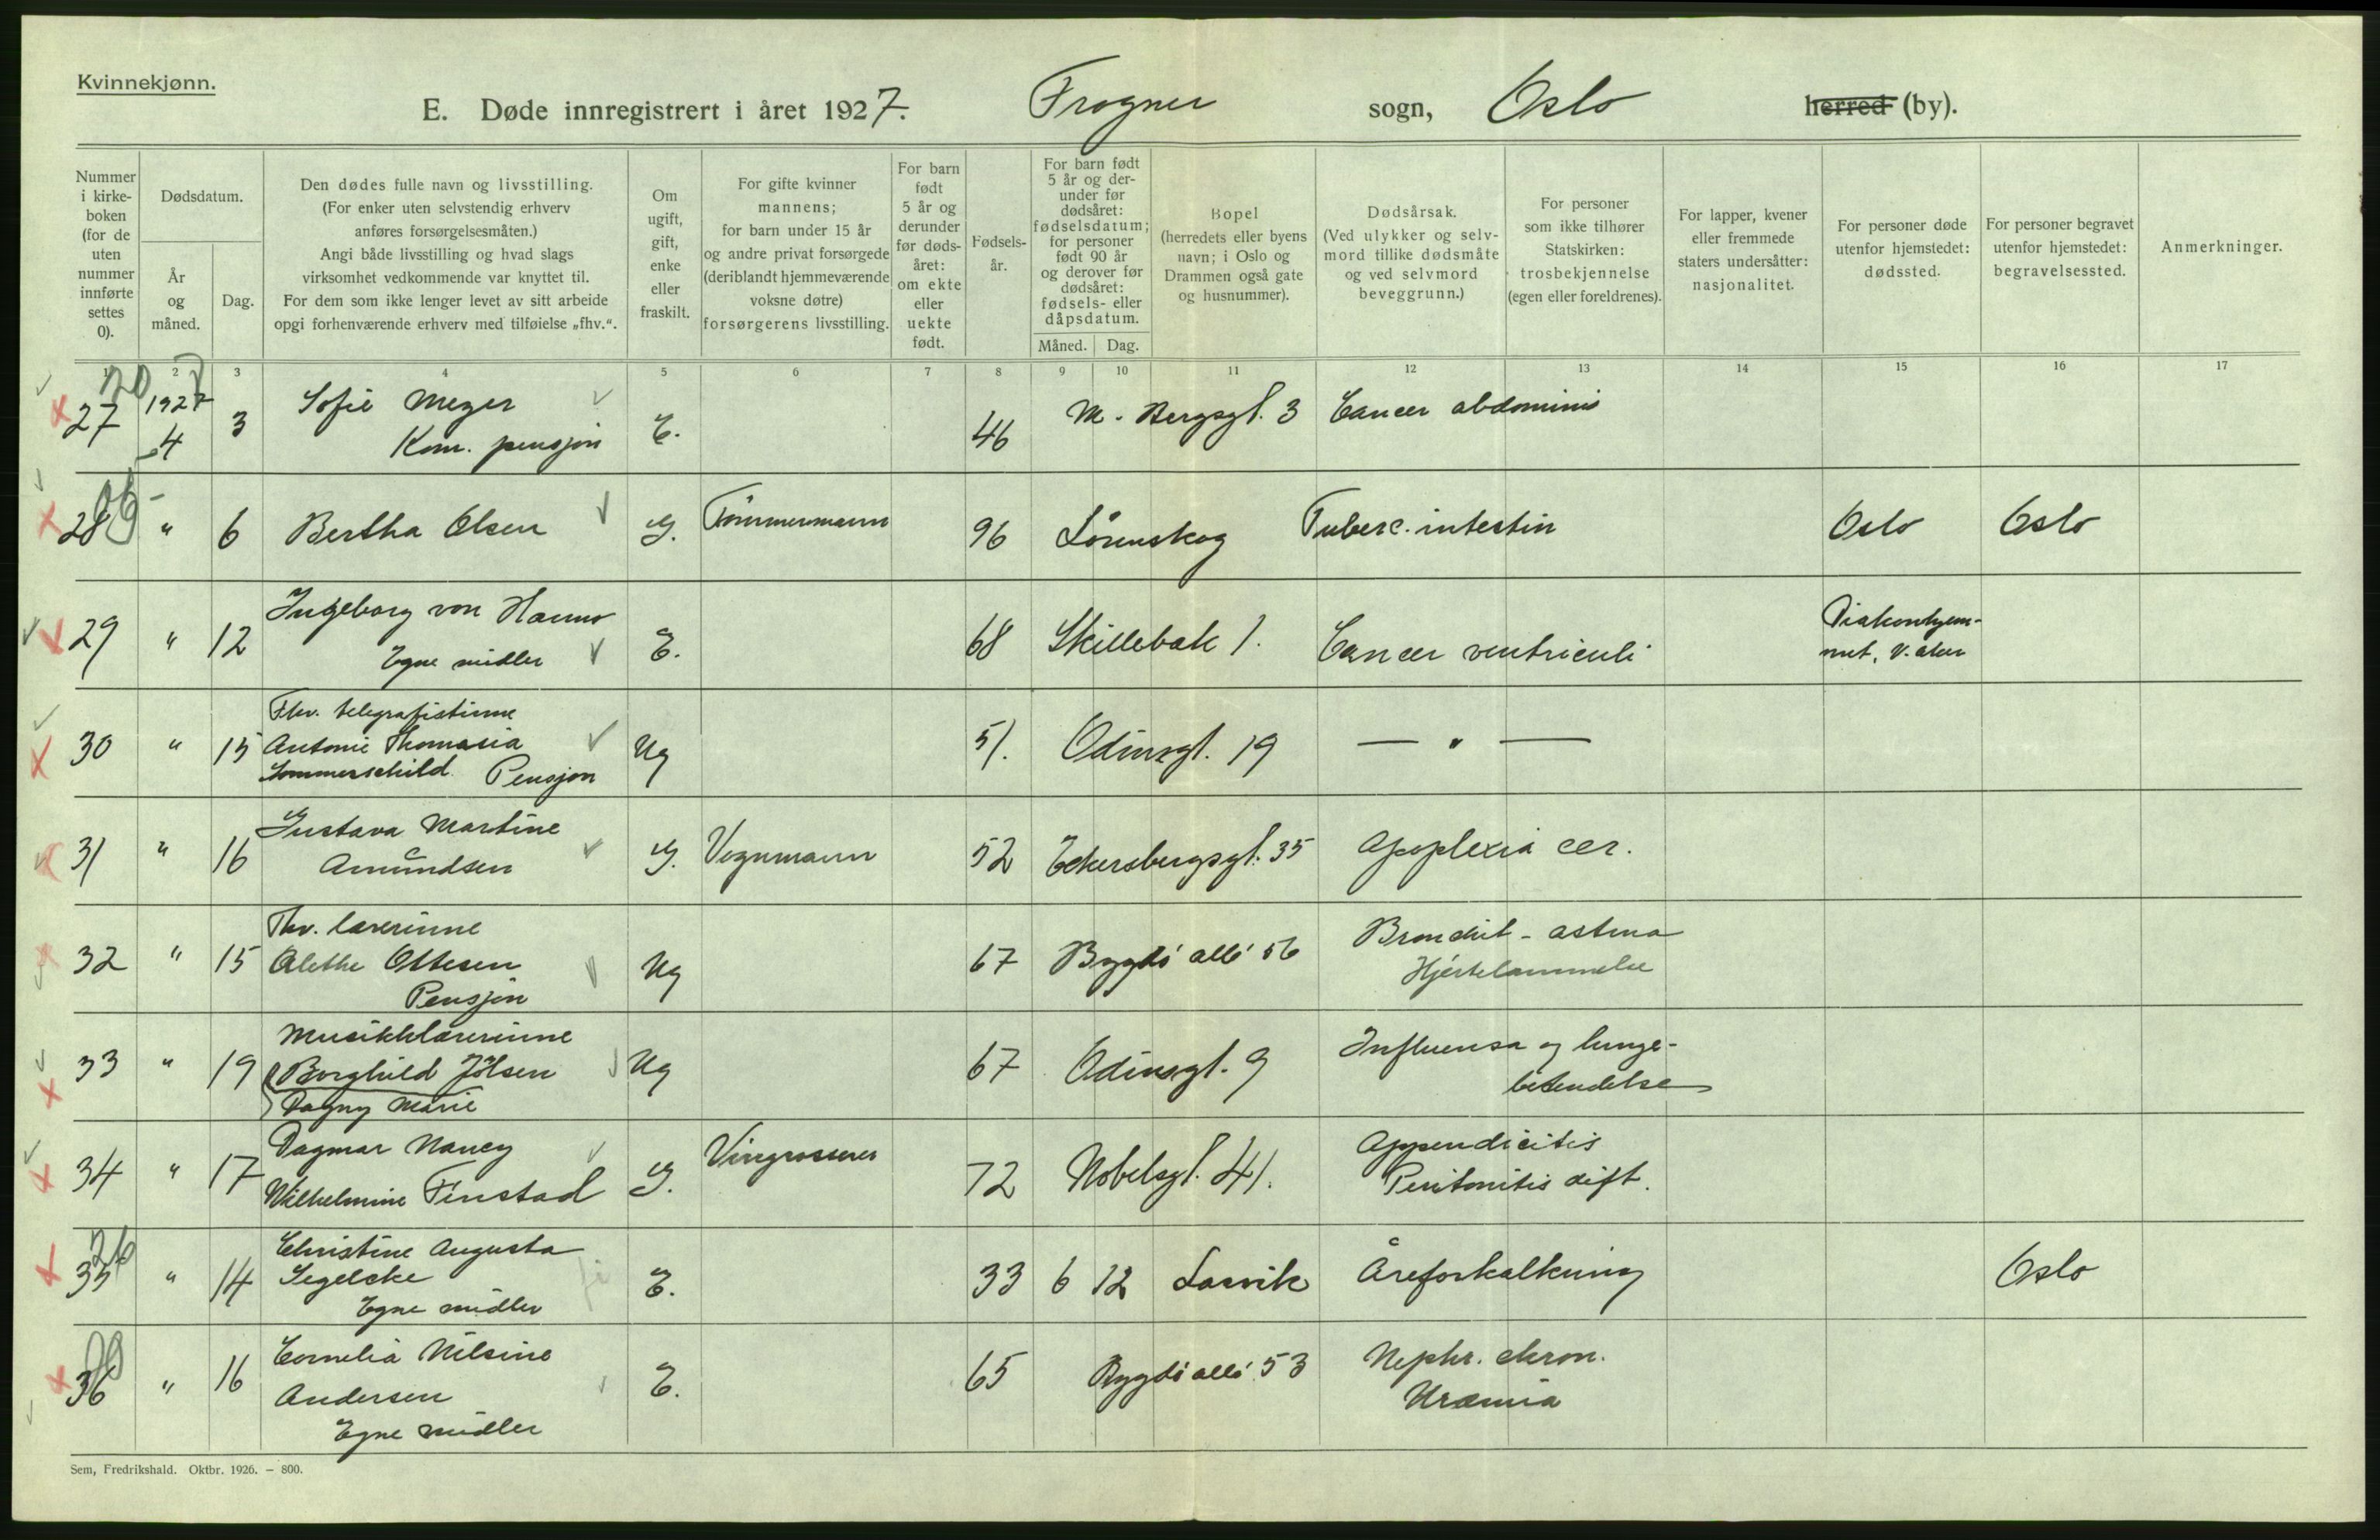 Kvinnekjønn.
E. Døde innregistrert i året 1927. Frogner sogn, Oslo herred (by).
Nummer i kirke-boken (for de uten nummer innførte settes 0).
Dødsdatum.
År og måned.
Dag.
Den dødes fulle navn og livsstilling.
(For enker uten selvstendig erhverv
anføres forsørgelsesmåten.)
Angi både livsstilling og hvad slags
virksomhet vedkommende var knyttet til.
For dem som ikke lenger levet av sitt arbeide
opgi forhenværende erhverv med tilføielse „fhv.“.
Om ugift, gift, enke eller fraskilt.
For gifte kvinner
mannens;
for barn under 15 år
og andre privat forsørgede
(deriblandt hjemmeværende
voksne døtre)
forsørgerens livsstilling.
For barn født 5 år og derunder før døds-året: om ekte eller uekte født.
Fødsels-år.
For barn født
5 år og der-
under før
dødsåret:
fødselsdatum;
for personer
født 90 år
og derover før
dødsåret:
fødsels- eller
dåpsdatum.
Måned. Dag.
Bopel
(herredets eller byens
navn; i Oslo og
Drammen også gate
og husnummer).
Dødsårsak.
(Ved ulykker og selv-
mord tillike dødsmåte
og ved selvmord
beveggrunn.)
For personer
som ikke tilhører
Statskirken:
trosbekjennelse
(egen eller foreldrenes).
For lapper, kvener
eller fremmede
staters undersåtter:
nasjonalitet.
For personer døde
utenfor hjemstedet:
dødssted.
For personer begravet
utenfor hjemstedet:
begravelsessted.
Anmerkninger.
1 2 3 4 5 6 7 8 9 10 11 12 13 14 15 16 17
27 1927 4 3 Sofie Meyer E. 46 M. Bergsgt. 3 Cancer abdominis
Kom. pensjon
28 " 6 Bertha Olsen G. Tømmermann 96 Lørenskog Tuberc. intestin Oslo Oslo
29 " 12 Ingeborg von Hanno E. 68 Skillebæk 1. Cancer ventriculi Diakonhjem-
Egne midler met, V. Aker
30 " 15 Fhv. telegrafistinne
Antonie Thomasia Ug 51. Odinsgt. 19 — " —
Sommerschild. Pensjon
31 " 16 Gustava Martine G. Vognmann 52 Eckersbergsgt. 35 Apoplexia cer.
Amundsen
32 " 15 Fhv. lærerinne
Alethe Ottesen Ug 67 Bygdø allé 56 Bronchit - astma
Pensjon Hjertelammelse
33 " 19 Musikklærerinne
Borghild Jølsen Ug 67 Odinsgt. 9 Influensa og lunge-
Dagny Marie betendelse
34 " 17 Dagmar Nancy G. Vingrosserer 72 Nobelsgt. 41. Appendicitis
Wilhelmine Finstad Peritonitis diff.
35 " 14 Christine Augusta
Segelcke E. 33 6 12 Larvik Åreforkalkning Oslo
Egne midler
36 " 16 Cornelia Nilsine
Andersen E. 65 Bygdø allé 53 Nephr. chron.
Egne midler Uræmia
Sem, Fredrikshald. Oktbr. 1926. – 800.